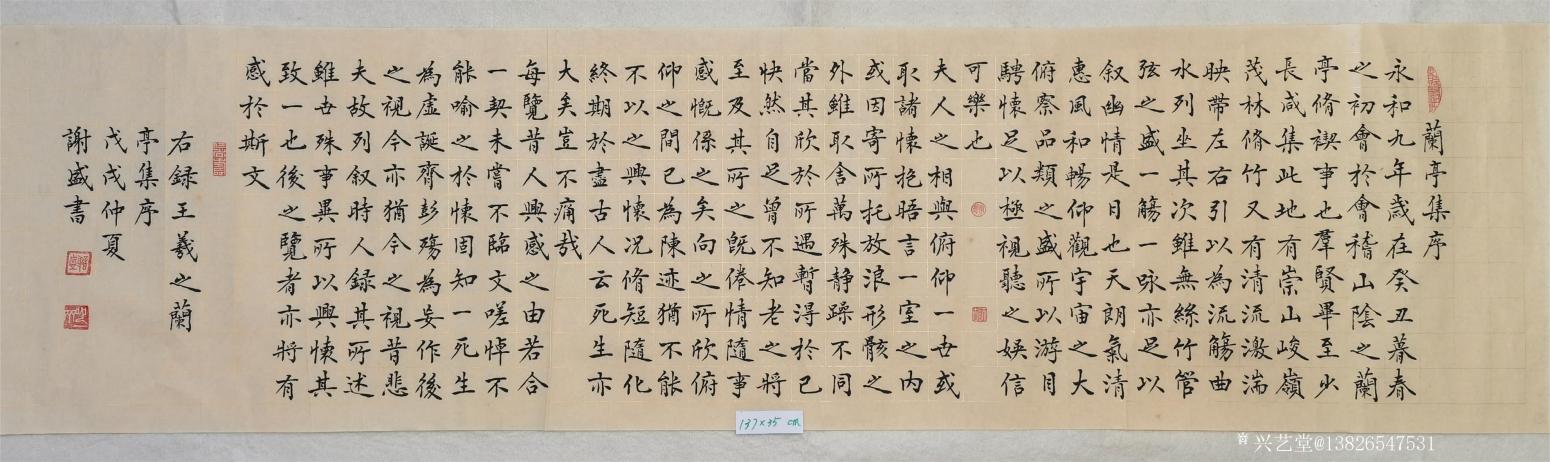 蘭亭集序
永和九年歲在癸丑暮春
之初會於會稽山陰之蘭
亭脩禊事也羣賢畢至少
長咸集此地有崇山峻嶺
茂林脩竹又有清流激湍
映帶左右引以為流觴曲
水列坐其次雖無絲竹管
弦之盛一觴一咏亦足以
叙幽情是日也天朗氣清
惠風和暢仰觀宇宙之大
俯察品類之盛所以游目
騁懷足以極視聽之娛信
可樂也
夫人之相與俯仰一世或
取諸懷抱晤言一室之内
或因寄所托放浪形骸之
外雖取舍萬殊静躁不同
當其欣於所遇暫得於己
快然自足曾不知老之將
至及其所之既倦情隨事
感慨係之矣向之所欣俯
仰之間已為陳迹猶不能
不以之興懷况脩短隨化
終期於盡古人云死生亦
大矣豈不痛哉
每覽昔人興感之由若合
一契未嘗不臨文嗟悼不
能喻之於懷固知一死生
為虛誕齊彭殤為妄作後
之視今亦猶今之視昔悲
夫故列叙時人録其所述
雖世殊事異所以興懷其
致一也後之覽者亦將有
感於斯文
右録王羲之蘭
亭集序
戊戌仲夏
謝盛書
137×35 cm
兴艺堂@13826547531